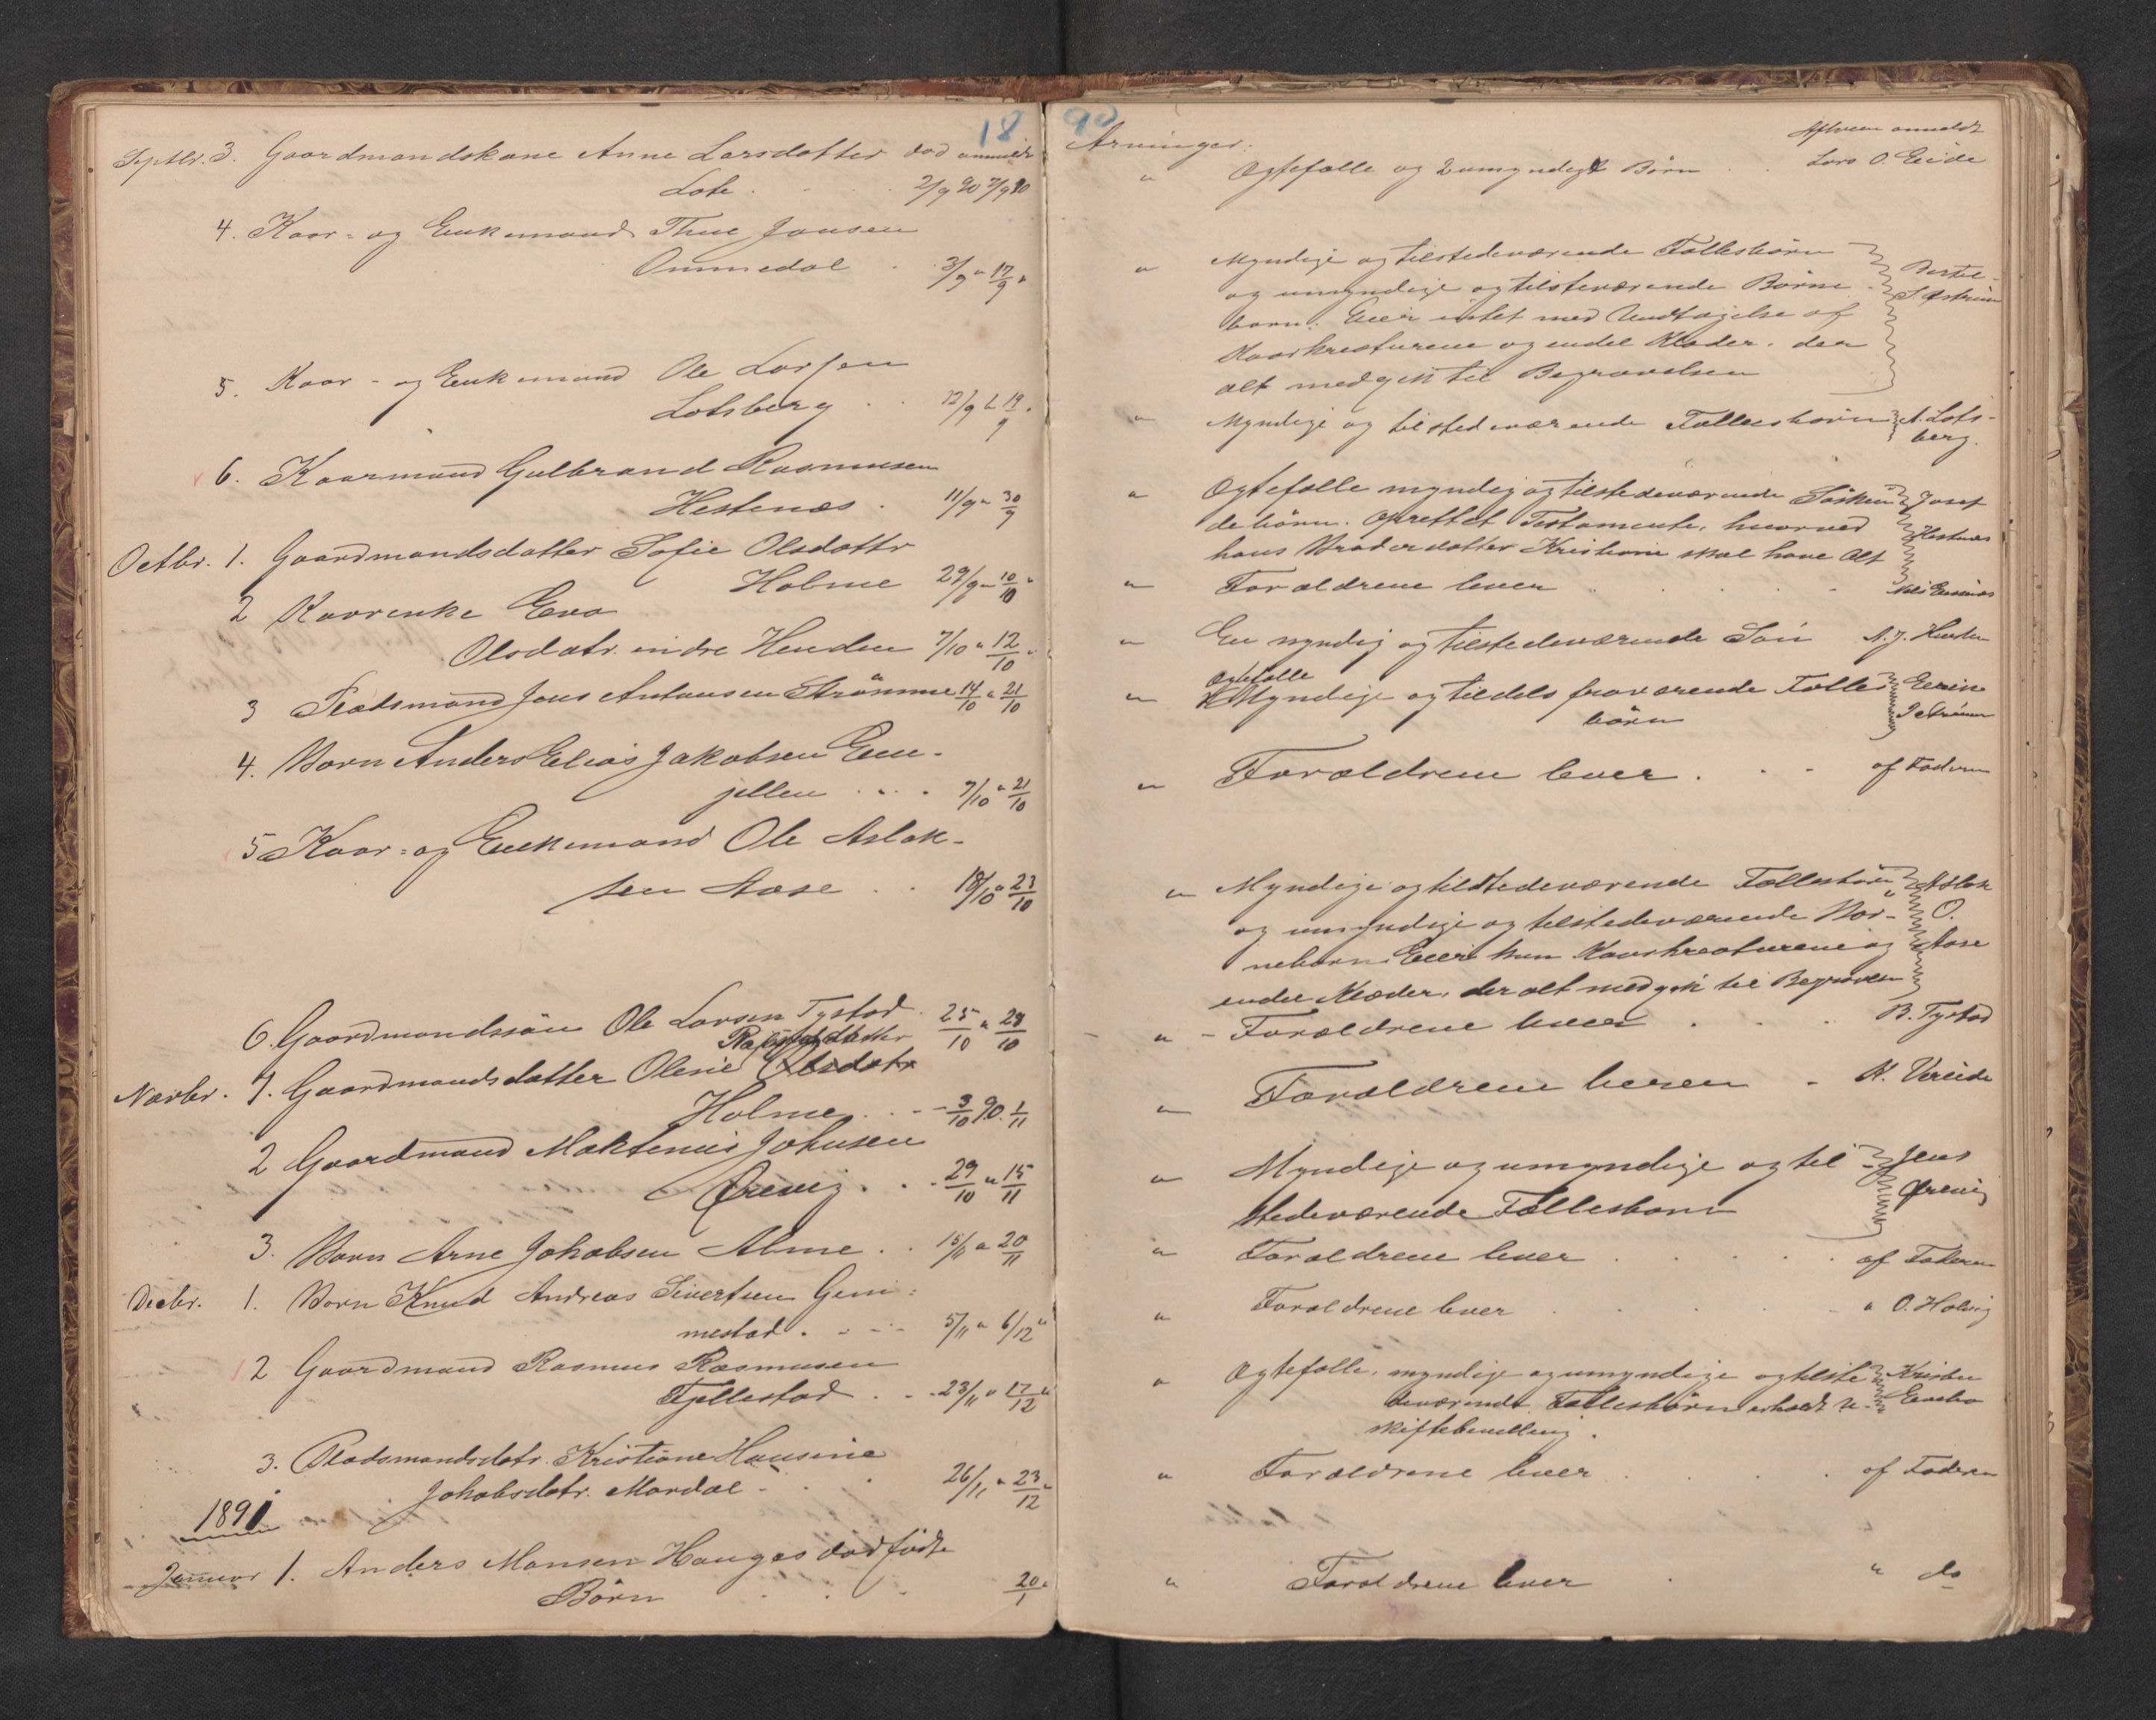 18
Septbr. 3. Gaardmandskone Anne Larsdatter död anmeldt
Lote . 2/9 90 7/9 90
4. Kaar- og Enkemand Thue Jansen
Ommedal . 3/9 " 17/9 "
5. Kaar- og Enkemand Ole Larsen
Lotsberg . . 12/9 " 19/9 "
6. Kaarmand Gulbrand Rasmusen
Hestenæs . 11/9 " 30/9
Octbr. 1. Gaardmandsdatter Sofie Olsdattr
Holme 29/9 " 10/10 "
2 Kaarenke Eva
Olsdatr. indre Henden 7/10 " 12/10 "
3 Pladsmand Jens Antonsen Strömme 14/10 " 21/10
4. Barn Anders Elias Jakobsen Em-
jellen . . . 7/10 " 21/10
5 Kaar- og Enkemand Ole Aslak-
sen Aase . . 18/10 " 23/10
6. Gaardmandssön Ole Larsen Tystad . 25/10 " 28/10
Novbr. 1. Gaardmandsdatter Olesie Olsdatr
Holme . . - 3/10 90. 1/11
2 Gaardmand Maktenius Johnsen
Ørevig . . . 29/10 " 15/11
3. Barn Arne Jakobsen Alme . . 15/11 " 20/11
Decbr. 1. Barn Knud Andreas Sivertsen Gim-
mestad . - - - 5/11 " 6/12 "
2 Gaardmand Rasmus Rasmusen
Fjellestad . . . 23/11 " 17/12 "
3. Pladsmandsdatr. Kristiane Hansine
Jakobsdatr. Mardal - . . 26/11 " 23/12 "
1891
Januar 1. Anders Monsen Hauges dödfödte
Börn . . . 20/1 "
90
Arvinger.
Afhvem anmeldt
" Ægtefælle og 2 umyndige Börn . . Lars O. Eide
" Myndige og tilstedeværende Fællesbörn
og umyndige og tilsteværende Börne-
börn. Eier intet med Undtagelse af
Kaarkreaturene og endel Klæder, der
alt medgik til Begravelsen
" Myndige og tilstedeværende Fællesbörn A. Lots-
berg.
" Ægtefælle myndig og tilstedeværende Södsken- Josef
debörn. Oprettet Testamente, hvorved Hestnæs
hans Broderdatter Kristiane skal have Alt
" Forældrene lever . . . .
" En myndig og tilstedeværende Sön A. J. Henden
Ægtefælle
" Myndige og tildels fraværende Fælles
börn
" Forældrene lever . . . af Faderen
" Myndige og tilstedeværende Fællesbörn Aslak
og umyndige og tilstedeværende Bör- O.
nebörn. Eier kun Kaarkreaturene og Aase
endel Klæder, der alt medgik til Begravelsen
" - Forældrene lever . . . B. Tystad
" Forældrene leven - K. Vereide
" Myndige og umyndige og til Jens
stedeværende Fællesbörn Ørevig
" Forældrene lever . . . . . af Faderen
" Forældrene lever . . . . " O. Holvig
" Ægtefælle, myndige og umyndige og tilste Kristen
deværende Fællesbörn
skiftebevilling.
" Forældrene lever . . . . af Faderen
" Forældrene lever . " do